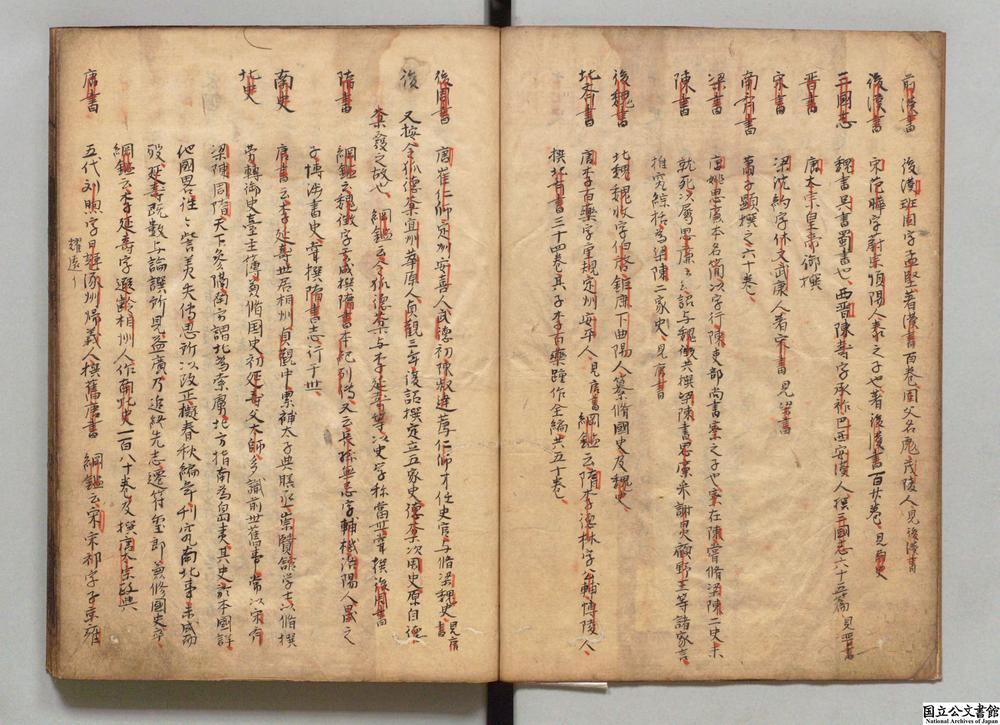 前漢書　後漢班固字孟堅著漢書百巻固父名彪茂陵人見後漢書
後漢書　宋范曄字蔚宗順陽人泰之子也著後漢書一百廿巻見南史
三國志　魏書呉書蜀書也西晋陳寿字承祚巴西安漢人撰三國志六十五篇見晋書
晋書　唐太宗皇帝御撰
宋書　梁沈約字休文武康人著宋書見梁書
南斉書　蕭子顕撰之六十巻
梁書　唐姚思廉本名簡以字行陳吏部尚書察之子也察在陳嘗脩梁陳二史未
陳書　就死以属思廉詔与魏徴共撰梁陳書思廉采謝炅顧野王等諸家言
推究綜括為梁陳二家史見唐書
後魏書　北魏魏收字伯啓鉅鹿下曲陽人纂脩國史及魏史
北斉書　唐李百薬字重規定州安平人見唐書綱鑑云隋李徳林字公輔博陵人
撰北斉書三十四巻其子李百薬踵作全編共五十巻
後周書　唐崔仁師定州安喜人武徳初陳叔達薦仁師才任史官与脩梁魏史見唐書
後　又按令狐徳棻宜州華原人貞観三年復詔撰定立五家史徳棻次周史原自徳
棻發之故也　綱鑑云令狐徳棻与李延寿等以史学称當世嘗撰後周書
隋書　綱鑑云魏徴字玄成撰隋書本紀列傳又云長孫無忌字輔機洛陽人累之
子博渉書史嘗撰隋書志行于世
南史　唐書云李延寿世居相州貞觀中累補太子典膳丞崇賢館学士以脩撰
北史　労轉御史臺主簿兼脩国史初延寿父大師多識前世舊事常以宋斉
梁陳周隋天下参隔南方謂北為索虜北方指南為島夷其史於本國詳
他國畧往々訾美失傳思所以改正擬春秋編年刊究南北事未成而
歿延寿既数与論譔所見益廣乃追終先志遷符璽郎兼修國史卒
綱鑑云李延寿字遐齢相州人作南北史一百八十巻及撰太宗政典
唐書　五代刘煦字日耀涿州帰義人撰舊唐書　綱鑑云宋宋祁字子京雍
耀遠
国立公文書館
National Archives of Japan